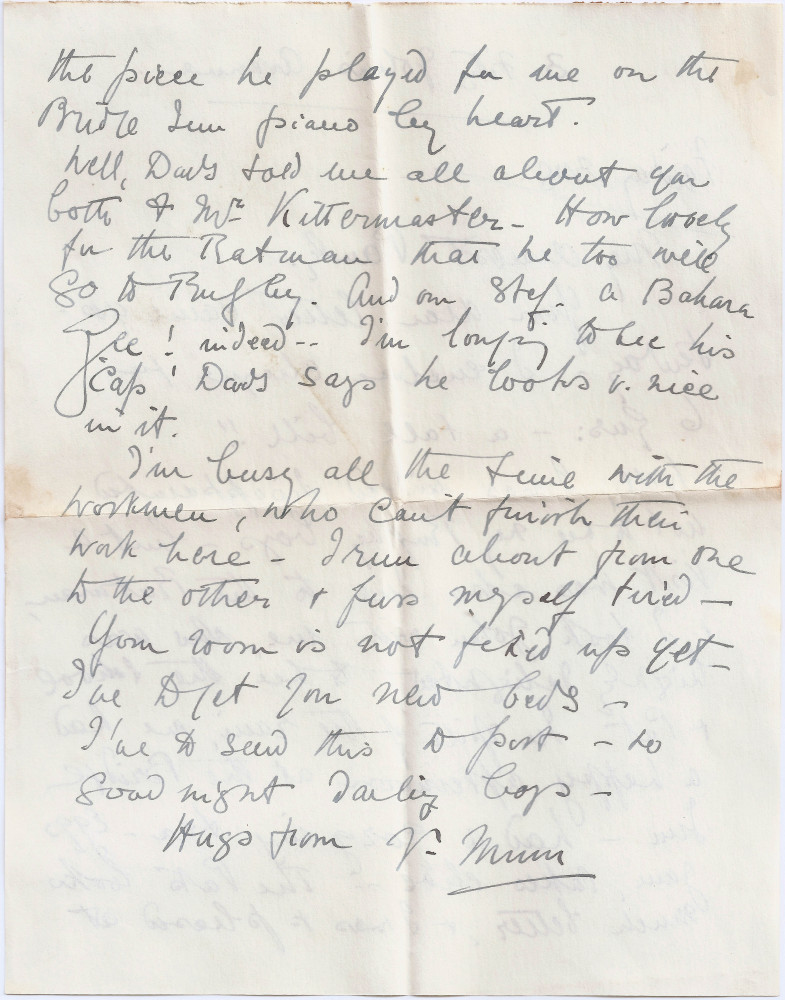 the piece he played for me on the
Bridge Inn piano by heart.
Well, Dads told me all about you
both & Mr Kittermaster - How lovely
for the Batman that he too will
go to Rugby. And our Stef. a Bahara
Gee! indeed -- I'm longing to see his
Cap! Dads says he looks v. nice
in it.
I'm busy all the time with the
workmen, who can't finish their
work here - I run about from one
to the other & fuss myself tired -
Your room is not fix'd up yet -
I've to get you new beds -
I've to send this to post - so
good night darling boys -
Hugs from Yr Mum